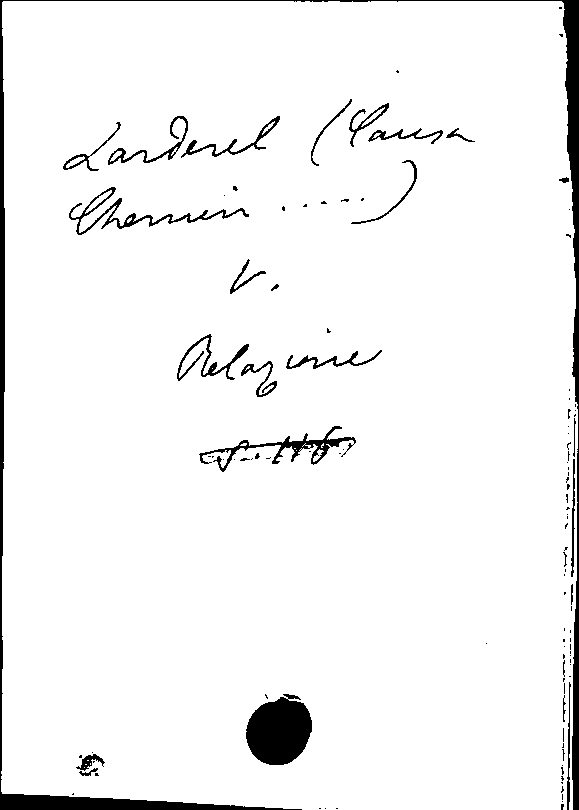 Larderel (Causa
Chemin .....)
V.
Relazione